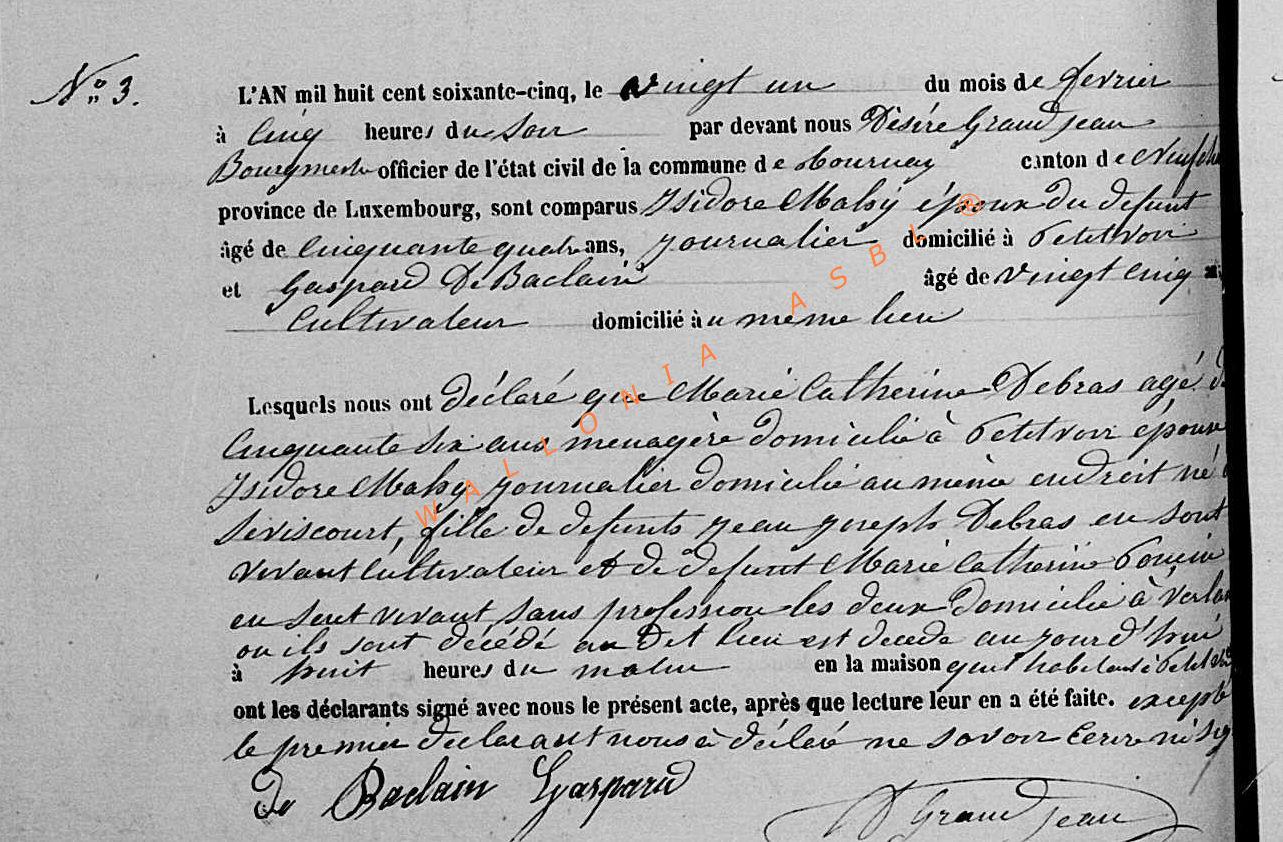 N° 3.
L'AN mil huit cent soixante-cinq, le vingt un du mois de fevrier
à Cinq heures du Soir par devant nous Désiré Grandjean
Bourgmestre officier de l'état civil de la commune de Tournay canton de Neufch
province de Luxembourg, sont comparus Isidore Mahy époux du defunt
âgé de Cinquante quatre ans, journalier domicilié à Petitvoir
et Gaspard De Baclain âgé de vingt Cinq
Cultivateur domicilié à u même lieu
Lesquels nous ont déclaré que Marie Catherine Debras agé de
Cinquante six ans menagère domicilié à Petitvoir épouse
Isidore Mahy journalier domicilié au même endroit né à
Seviscourt, fille de defunts jean joseph Debras en sont
vivant Cultivateur et de defunt Marie Catherine
en sont vivant sans profession les deux Domicilié à
ou ils sont décédé au Dit lieu est decede aujourd'hui
à huit heures du matin en la maison qu'il à
ont les déclarants signé avec nous le présent acte, après que lecture leur en a été faite. excepté
le premier declarant nous à déclaré ne savoir Ecrire ni sig
de Baclain Gaspard
D Grandjean
WALLONIA ASBL ®